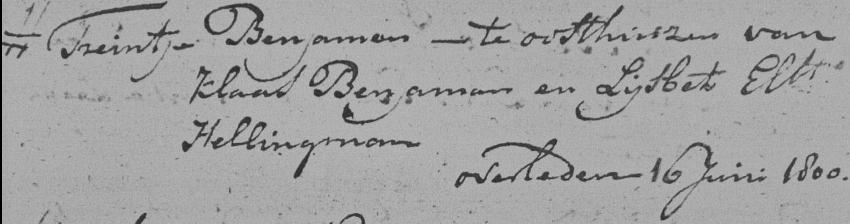 Treintje Benjamon — te oosthuizen van
Klaas Benjaman en Lijsbet
Hellingman
overleden 16 Juni 1800.